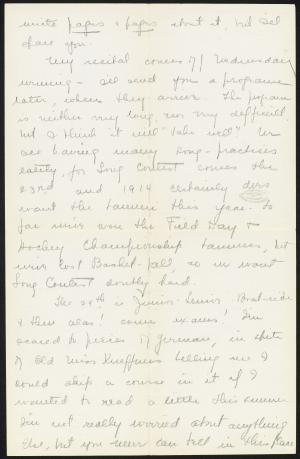 write pages & pages about it, but I'll
spare you.
My recital comes off Wednesday
evening - I'll send you a programe
later, when they arrive. The program
is neither very long, nor very difficult,
but I think it will "take well". We
are having many song-practices
lately, for Song Contest comes the
23rd and 1914 certainly does
want the banner this year. So
far we've won the Field Day &
Hockey Championship banners, but
we've lost Basket-ball, so we want
Song Contest doubly hard.
The 29th is Junior-Senior Boat-ride
& then alas! come exams! I'm
scared to pieces of German, in spite
of old Miss telling me I
could skip a course in it if I
wanted to read a little this summer
I'm not really worried about anything
else, but you never can tell in this place